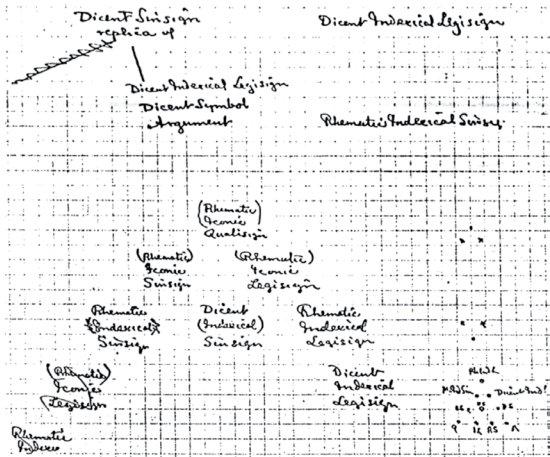 Dicent Sinsign
replica of
Dicent Indexical Legisign
Dicent Indexical Legisign
Dicent Symbol
Argument
Rhematic Indexical Sinsig
(Rhematic)
Iconic
Qualisign
(Rhematic)
Iconic
Sinsign
(Rhematic)
Iconic
Legisign
Rhematic
(Indexical)
Sinsign
Dicent
(Indexical)
Sinsign
Rhematic
Indexical
Legisign
(Rhematic)
Iconic
Legisign
Dicent
Indexical
Legisign
Rhematic
Indexic